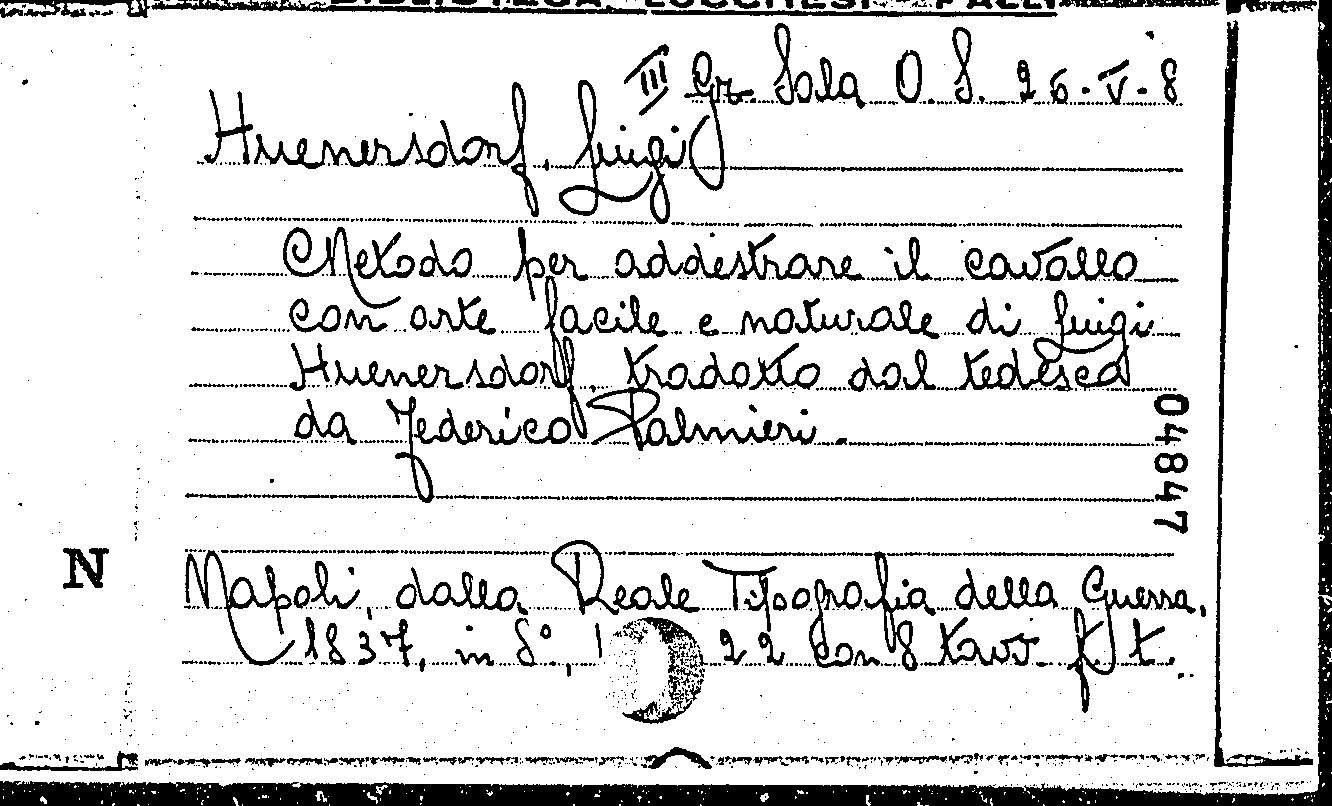 BIBLIOTECA LUCCHESI - PALLI
III Gr. Sala O. S. 26-V-8
Huenersdorf, Luigi
Metodo per addestrare il cavallo
con arte facile e naturale di Luigi
Huenersdorf, tradotto dal tedesco
da Federico Palmieri.
04847
N
Napoli, dalla Reale Tipografia della Guerra,
1837, in 8°, 22 con 8 tavv. f. t.